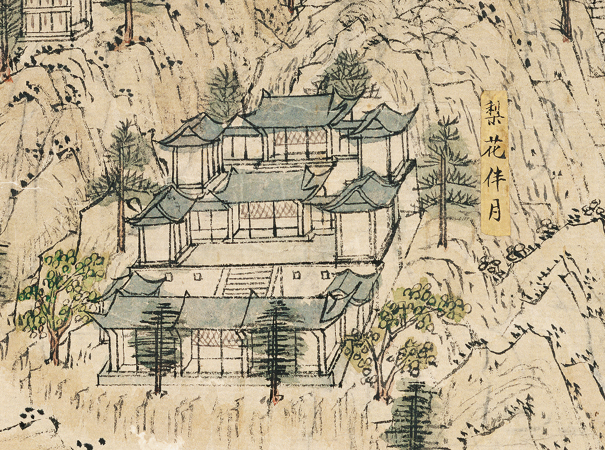 梨花伴月